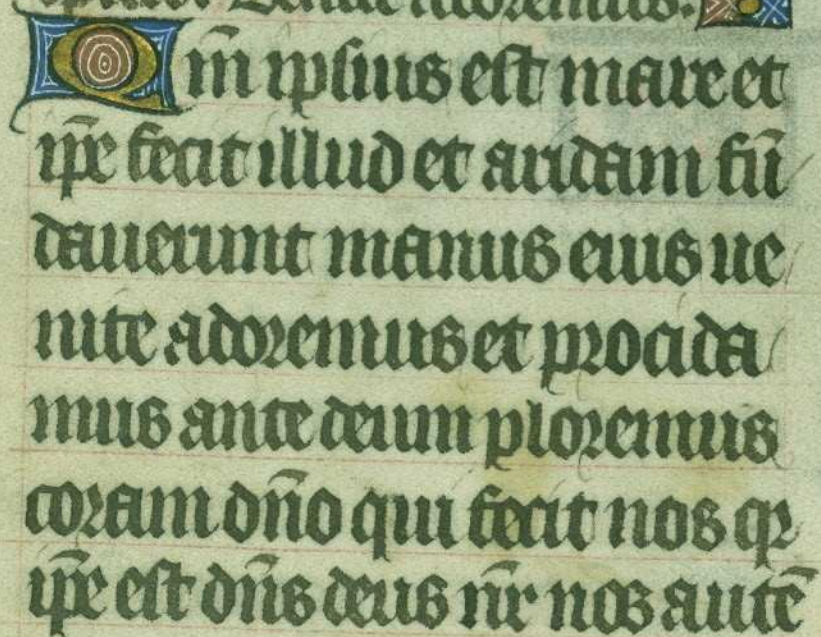 Venite adoremus.
Qm̄ ipsius est mare et
ip̄e fecit illud et aridam fū
dauerunt manus eius ue
nite adoremus et procida
mus ante deum ploremus
coram dn̄o qui fecit nos qr
ip̄e est dn̄s deus nr̄ nos autē